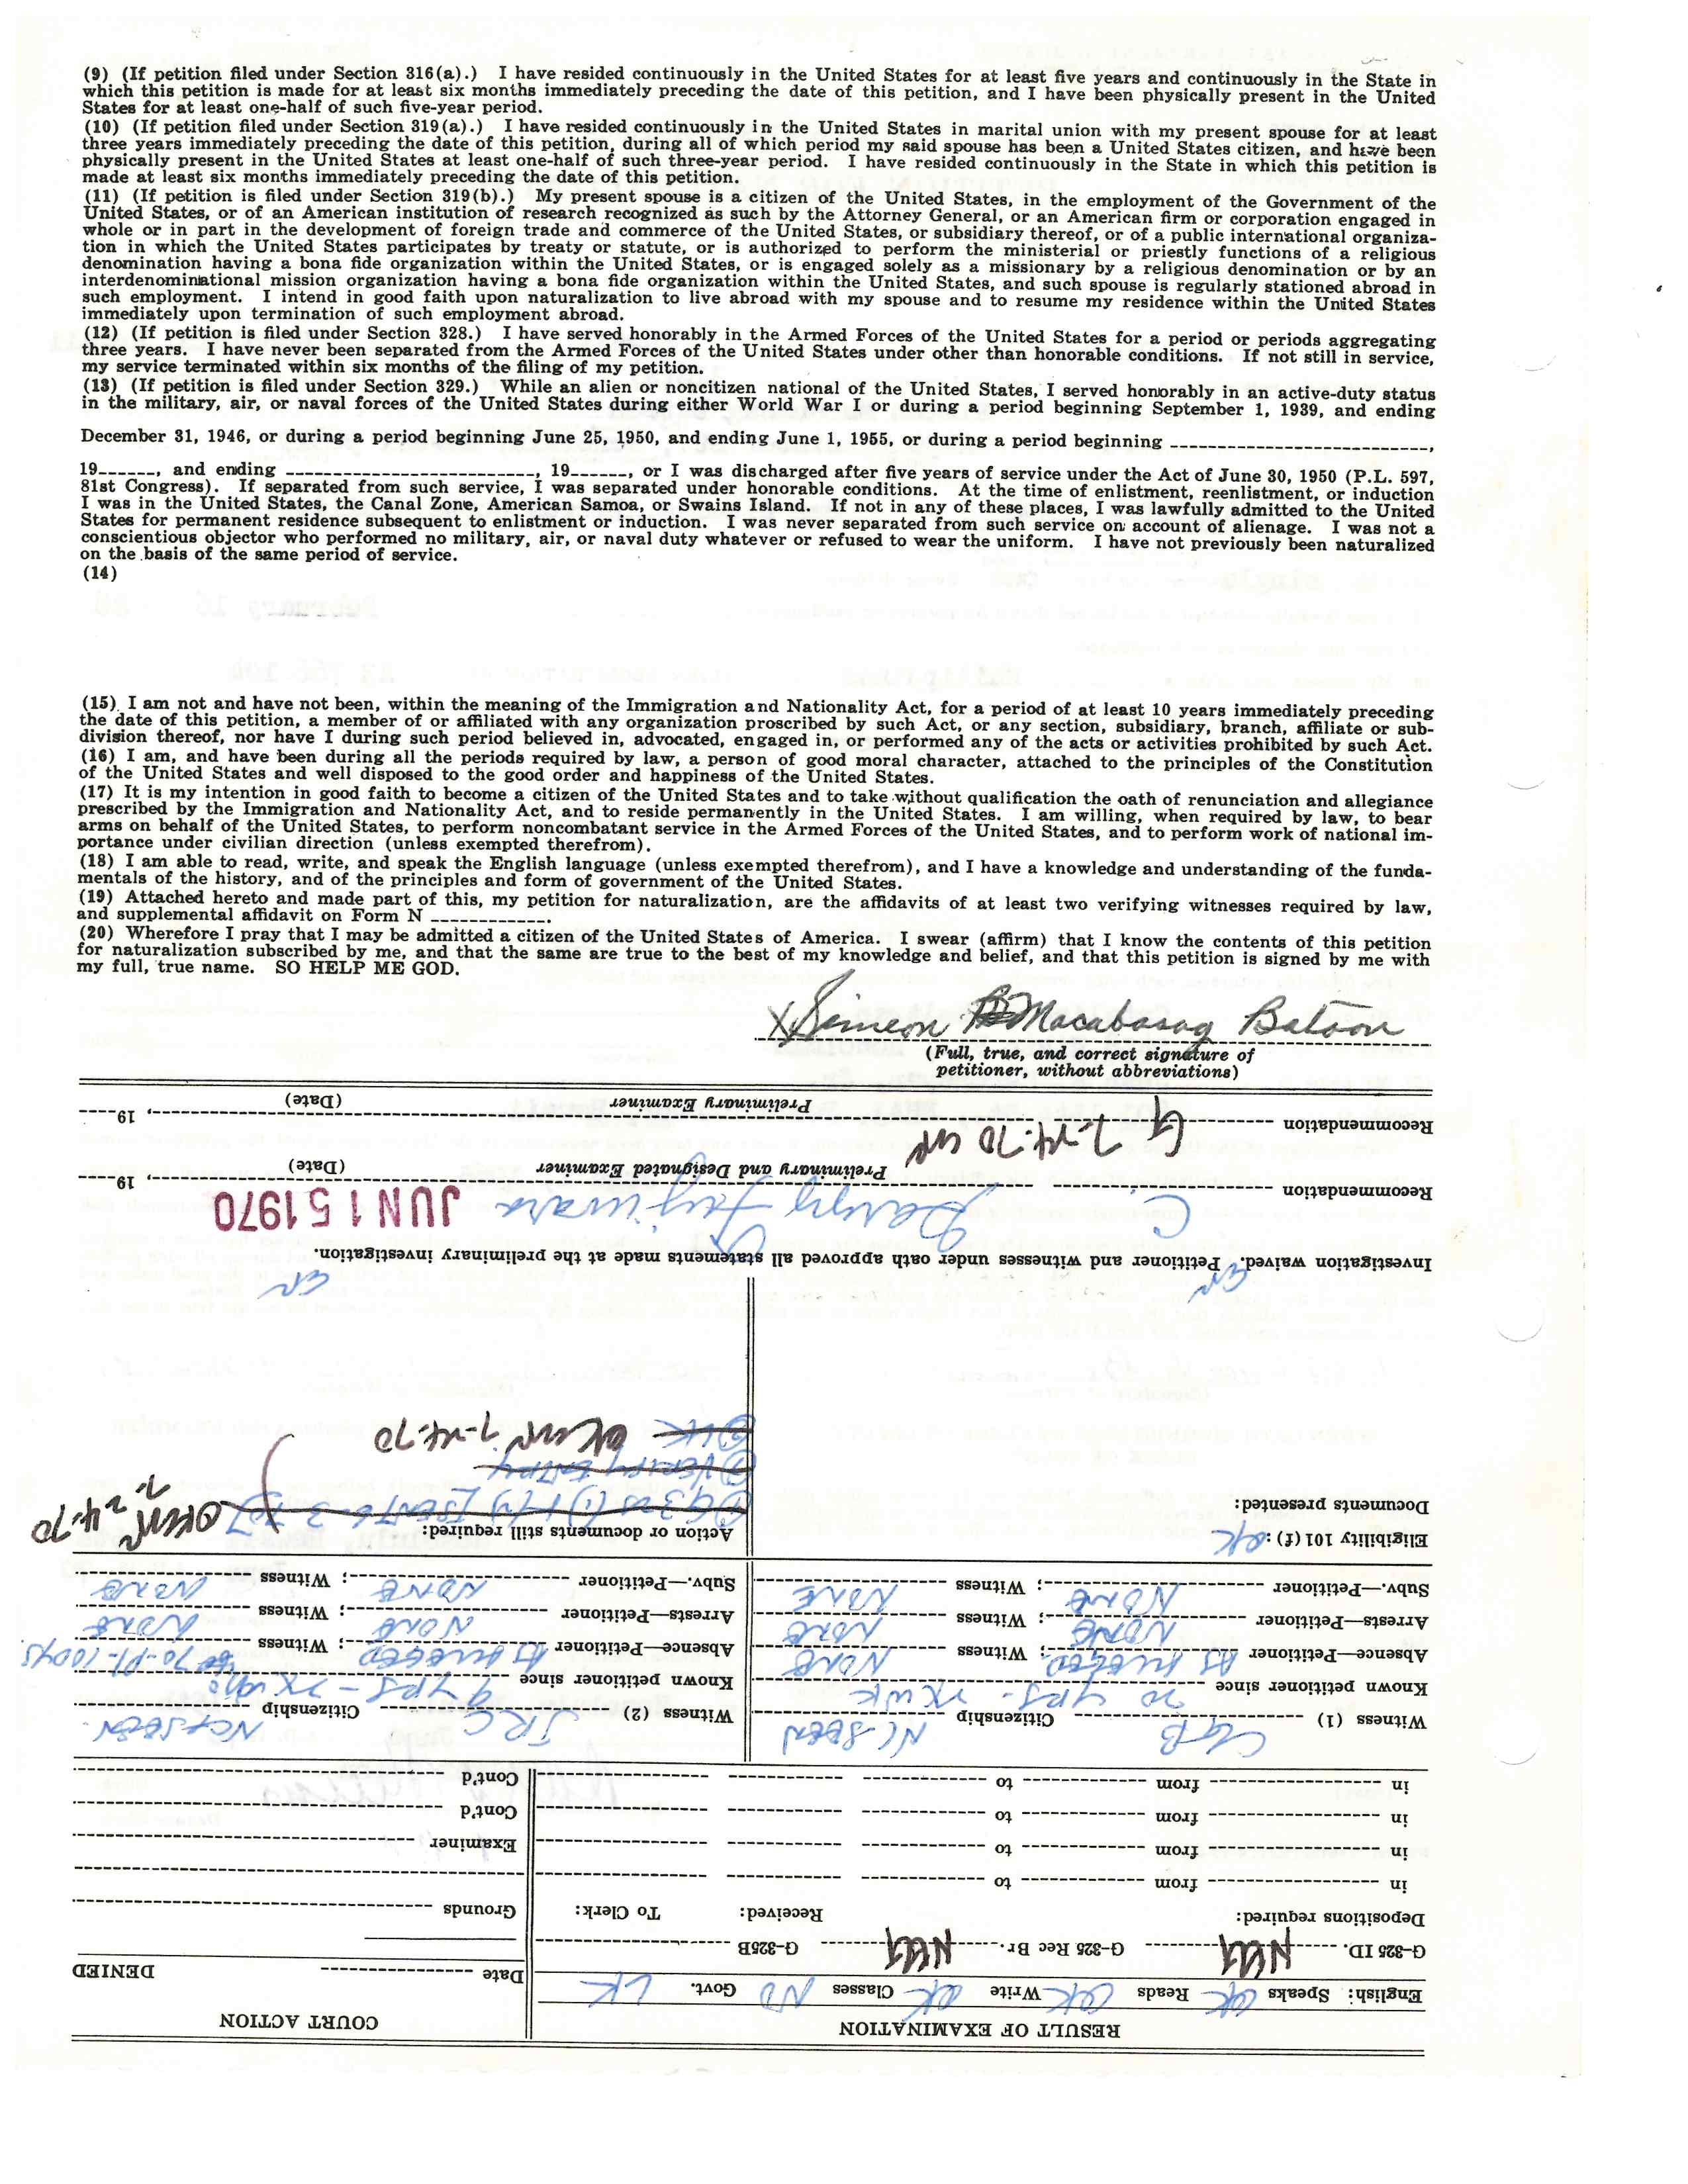 (9) (If petition filed under Section 316(a).) I have resided continuously in the United States for at least five years and continuously in the State in
which this petition is made for at least six months immediately preceding the date of this petition, and I have been physically present in the United
States for at least one-half of such five-year period.
(10) (If petition filed under Section 319(a).) I have resided continuously in the United States in marital union with my present spouse for at least
three years immediately preceding the date of this petition, during all of which period my said spouse has been a United States citizen, and have been
physically present in the United States at least one-half of such three-year period. I have resided continuously in the State in which this petition is
made at least six months immediately preceding the date of this petition.
(11) (If petition is filed under Section 319(b).) My present spouse is a citizen of the United States, in the employment of the Government of the
United States, or of an American institution of research recognized as such by the Attorney General, or an American firm or corporation engaged in
whole or in part in the development of foreign trade and commerce of the United States, or subsidiary thereof, or of a public international organiza-
tion in which the United States participates by treaty or statute, or is authorized to perform the ministerial or priestly functions of a religious
denomination having a bona fide organization within the United States, or is engaged solely as a missionary by a religious denomination or by an
interdenominational mission organization having a bona fide organization within the United States, and such spouse is regularly stationed abroad in
such employment. I intend in good faith upon naturalization to live abroad with my spouse and to resume my residence within the United States
immediately upon termination of such employment abroad.
(12) (If petition is filed under Section 328.) I have served honorably in the Armed Forces of the United States for a period or periods aggregating
three years. I have never been separated from the Armed Forces of the United States under other than honorable conditions. If not still in service,
my service terminated within six months of the filing of my petition.
(13) (If petition is filed under Section 329.) While an alien or noncitizen national of the United States, I served honorably in an active-duty status
in the military, air, or naval forces of the United States during either World War I or during a period beginning September 1, 1939, and ending
December 31, 1946, or during a period beginning June 25, 1950, and ending June 1, 1955, or during a period beginning ,
19 , and ending , 19 , or I was discharged after five years of service under the Act of June 30, 1950 (P.L. 597,
81st Congress). If separated from such service, I was separated under honorable conditions. At the time of enlistment, reenlistment, or induction
I was in the United States, the Canal Zone, American Samoa, or Swains Island. If not in any of these places, I was lawfully admitted to the United
States for permanent residence subsequent to enlistment or induction. I was never separated from such service on account of alienage. I was not a
conscientious objector who performed no military, air, or naval duty whatever or refused to wear the uniform. I have not previously been naturalized
on the basis of the same period of service.
(14)
(15) I am not and have not been, within the meaning of the Immigration and Nationality Act, for a period of at least 10 years immediately preceding
the date of this petition, a member of or affiliated with any organization proscribed by such Act, or any section, subsidiary, branch, affiliate or sub-
division thereof, nor have I during such period believed in, advocated, engaged in, or performed any of the acts or activities prohibited by such Act.
(16) I am, and have been during all the periods required by law, a person of good moral character, attached to the principles of the Constitution
of the United States and well disposed to the good order and happiness of the United States.
(17) It is my intention in good faith to become a citizen of the United States and to take without qualification the oath of renunciation and allegiance
prescribed by the Immigration and Nationality Act, and to reside permanently in the United States. I am willing, when required by law, to bear
arms on behalf of the United States, to perform noncombatant service in the Armed Forces of the United States, and to perform work of national im-
portance under civilian direction (unless exempted therefrom).
(18) I am able to read, write, and speak the English language (unless exempted therefrom), and I have a knowledge and understanding of the funda-
mentals of the history, and of the principles and form of government of the United States.
(19) Attached hereto and made part of this, my petition for naturalization, are the affidavits of at least two verifying witnesses required by law,
and supplemental affidavit on Form N .
(20) Wherefore I pray that I may be admitted a citizen of the United States of America. I swear (affirm) that I know the contents of this petition
for naturalization subscribed by me, and that the same are true to the best of my knowledge and belief, and that this petition is signed by me with
my full, true name. SO HELP ME GOD.
X Simeon Macabasag Batoon
(Full, true, and correct signature of
petitioner, without abbreviations)
RESULT OF EXAMINATION
COURT ACTION
English: Speaks OK Reads OK Write OK Classes NO Govt. OK
Date DENIED
G-325 ID. G-325 Rec Br. G-325B
Depositions required: Received: To Clerk:
Grounds
in from to
in from to
Examiner
in from to
Cont'd
in from to
Cont'd
Witness (1) CGB Citizenship NC-SEEN
Known petitioner since 20 YRS -
Absence—Petitioner AS ALLEGED; Witness NONE
Arrests—Petitioner NONE; Witness NONE
Subv.—Petitioner NONE; Witness NONE
Witness (2) JRC Citizenship NC+SEEN
Known petitioner since 9 YRS -
Absence—Petitioner AS ALLEGED; Witness
Arrests—Petitioner NONE; Witness NONE
Subv.—Petitioner NONE; Witness NONE
Eligibility 101 (f): OK
Documents presented:
Action or documents still required:
② VERIFY ENTRY
7-14-70
Investigation waived. Petitioner and witnesses under oath approved all statements made at the preliminary investigation.
Recommendation JUN 15 1970, 19
Preliminary and Designated Examiner (Date)
Recommendation G 7-14-70 , 19
Preliminary Examiner (Date)